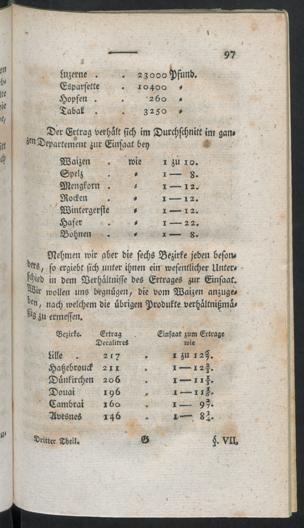 97
Luzerne . . 23000 Pfund.
Esparsette . 10400 „
Hopfen . . 260 „
Tabak . . 3250 „
Der Ertrag verhält sich im Durchschnitt im gan-
zen Departement zur Einsaat bey
Waizen . wie 1 zu 10.
Spelz . „ 1 — 8.
Mengkorn . „ 1 — 12.
Rocken . „ 1 — 12.
Wintergerste „ 1 — 12.
Hafer . „ 1 — 22.
Bohnen . „ 1 — 8.
Nehmen wir aber die sechs Bezirke jeden beson-
ders, so ergiebt sich unter ihnen ein wesentlicher Unter-
schied in dem Verhältnisse des Ertrages zur Einsaat.
Wir wollen uns begnügen, die vom Waizen anzuge-
ben, nach welchem die übrigen Produkte verhältnißmä-
ßig zu ermessen.
Bezirke. Ertrag Einsaat zum Ertrage
Decalitres wie
Lille . 217 . 1 zu 12
Hatzebrouck 211 . 1 — 12
Dünkirchen 206 . 1 — 11
Douai 196 . 1 — 11
Cambrai 160 . 1 — 9
Avesnes 146 . 1 — 8
Dritter Theil. G §. VII.